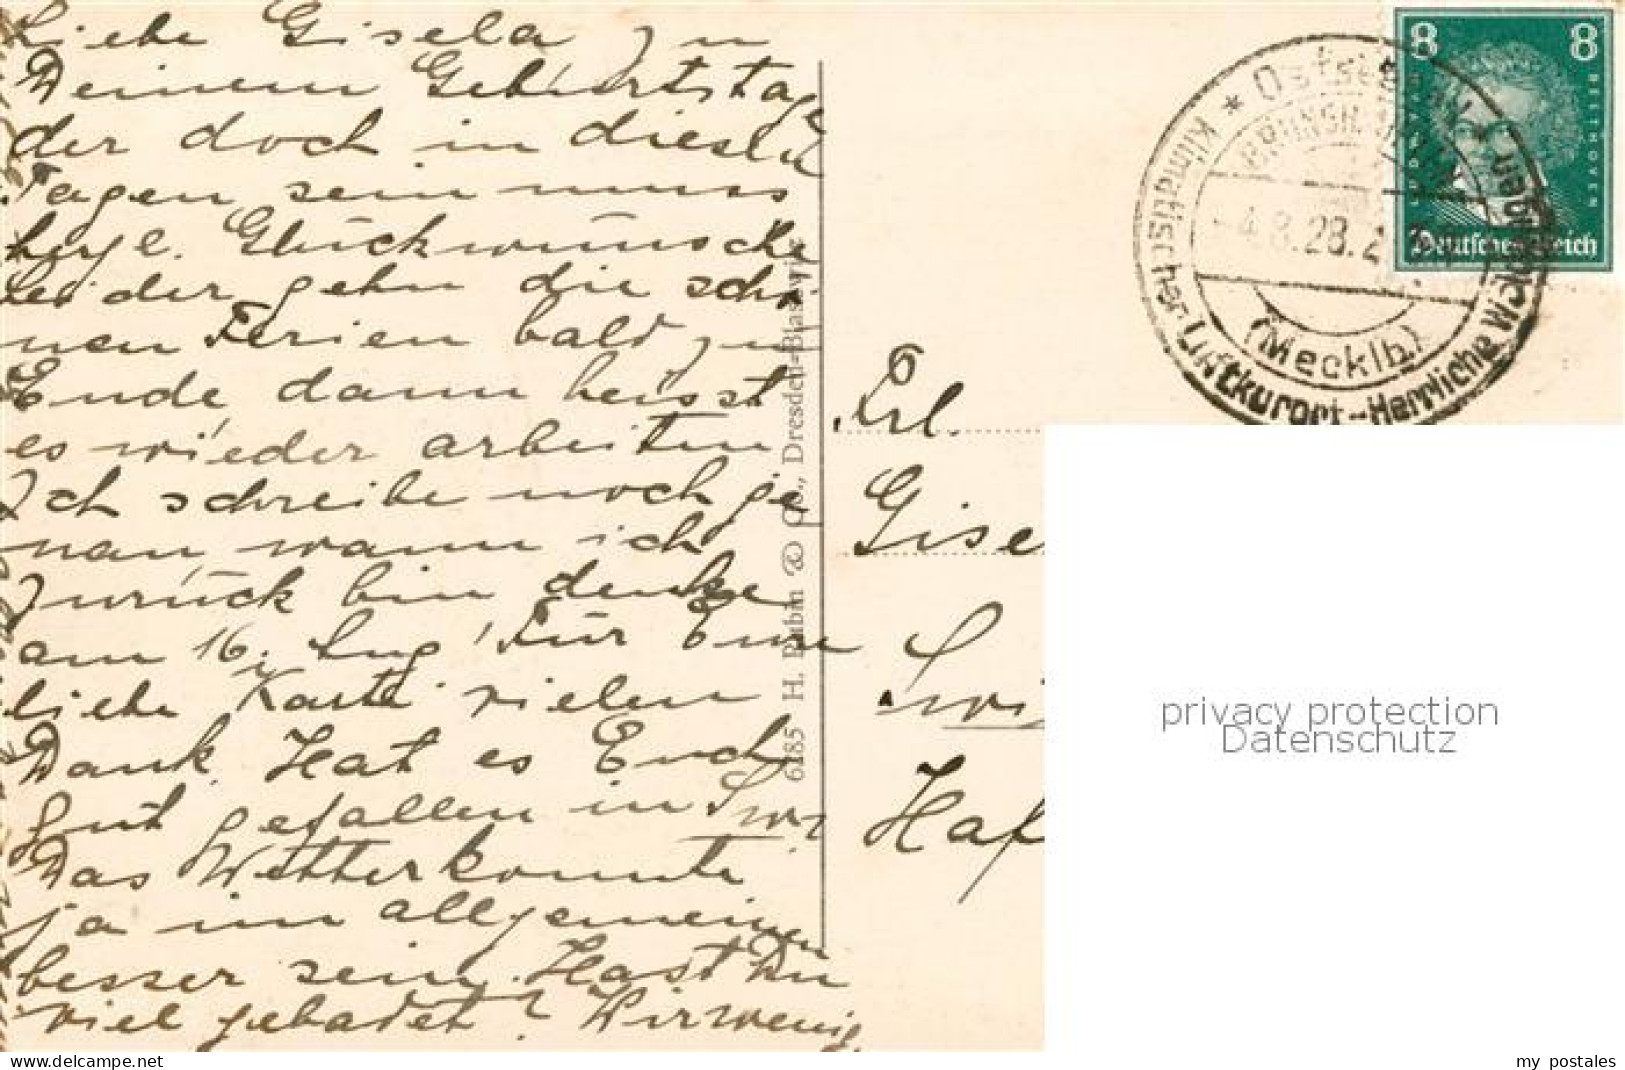 Liebe Gisela zu
Deinem Geburtstage
der doch in diesen
Tagen sein muss
herzl. Glückwünsche
leider gehn die schö-
nen Ferien bald zu
Ende dann heisst
es wieder arbeiten
Ich schreibe noch ge
nau, wann ich
zurück bin denke
am 16. Aug. Für Eure
liebe Karte vielen
Dank. Hat es Euch
gut gefallen in
Das Wetter konnte
ja im allgemeinen
besser sein. Hast Du
viel gebadet? Wir wenig,
6185 H. Rubin & Co., Dresden-Blasewitz
Frl.
Gise
Swi
Haf
* Ostsee
BRUNSH
-4.8.28.
(Mecklb.)
Klimatischer Luftkurort - Herrliche Waldungen
8 8
LUDWIG VAN BEETHOVEN
Deutsches Reich
privacy protection
Datenschutz
my postales
www.delcampe.net